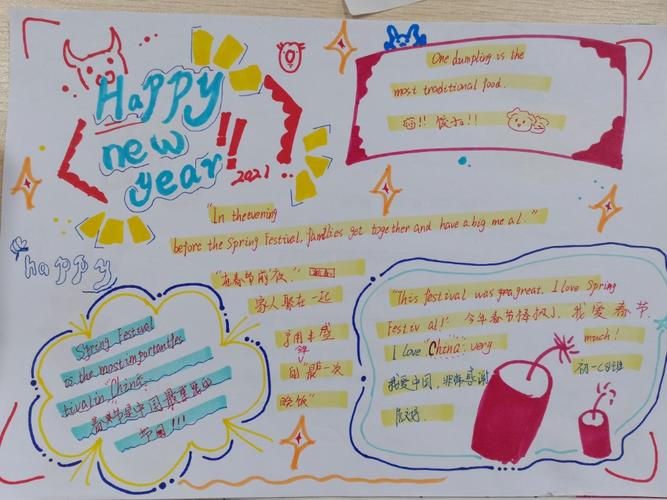 Happy
new
year!!
2021
One dumpling is the
most traditional food.
!! 饺子!!
"In the evening
before the Spring Festival, families get together and have a big me al."
happy
"在春节前夜."
家人聚在一起
享用丰盛
的"最一次
晚饭"
Spring Festival
is the most importantfes
tival in "China"
春节是中国最重要的
节日!!!
"This festival was great. I love Spring
Festiv al!" 今年春节棒极了, 我爱春节.
I love "China" very much!
我爱中国, 非常感谢
初一